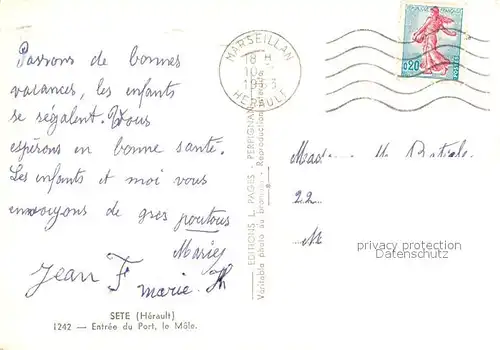 Passons de bonnes
vacances, les enfants
se régalent. Vous
espérons en bonne santé.
Les enfants et moi vous
envoyons de gros poutous
Jean F
Marie. Th
SETE (Hérault)
1242 — Entrée du Port, le Môle.
EDITIONS L. PAGES - PERPIGNAN
Véritable photo au bromure - Reproduction
MARSEILLAN
18 H
HERAULT
0,20
POSTES
22
M
privacy protection
Datenschutz